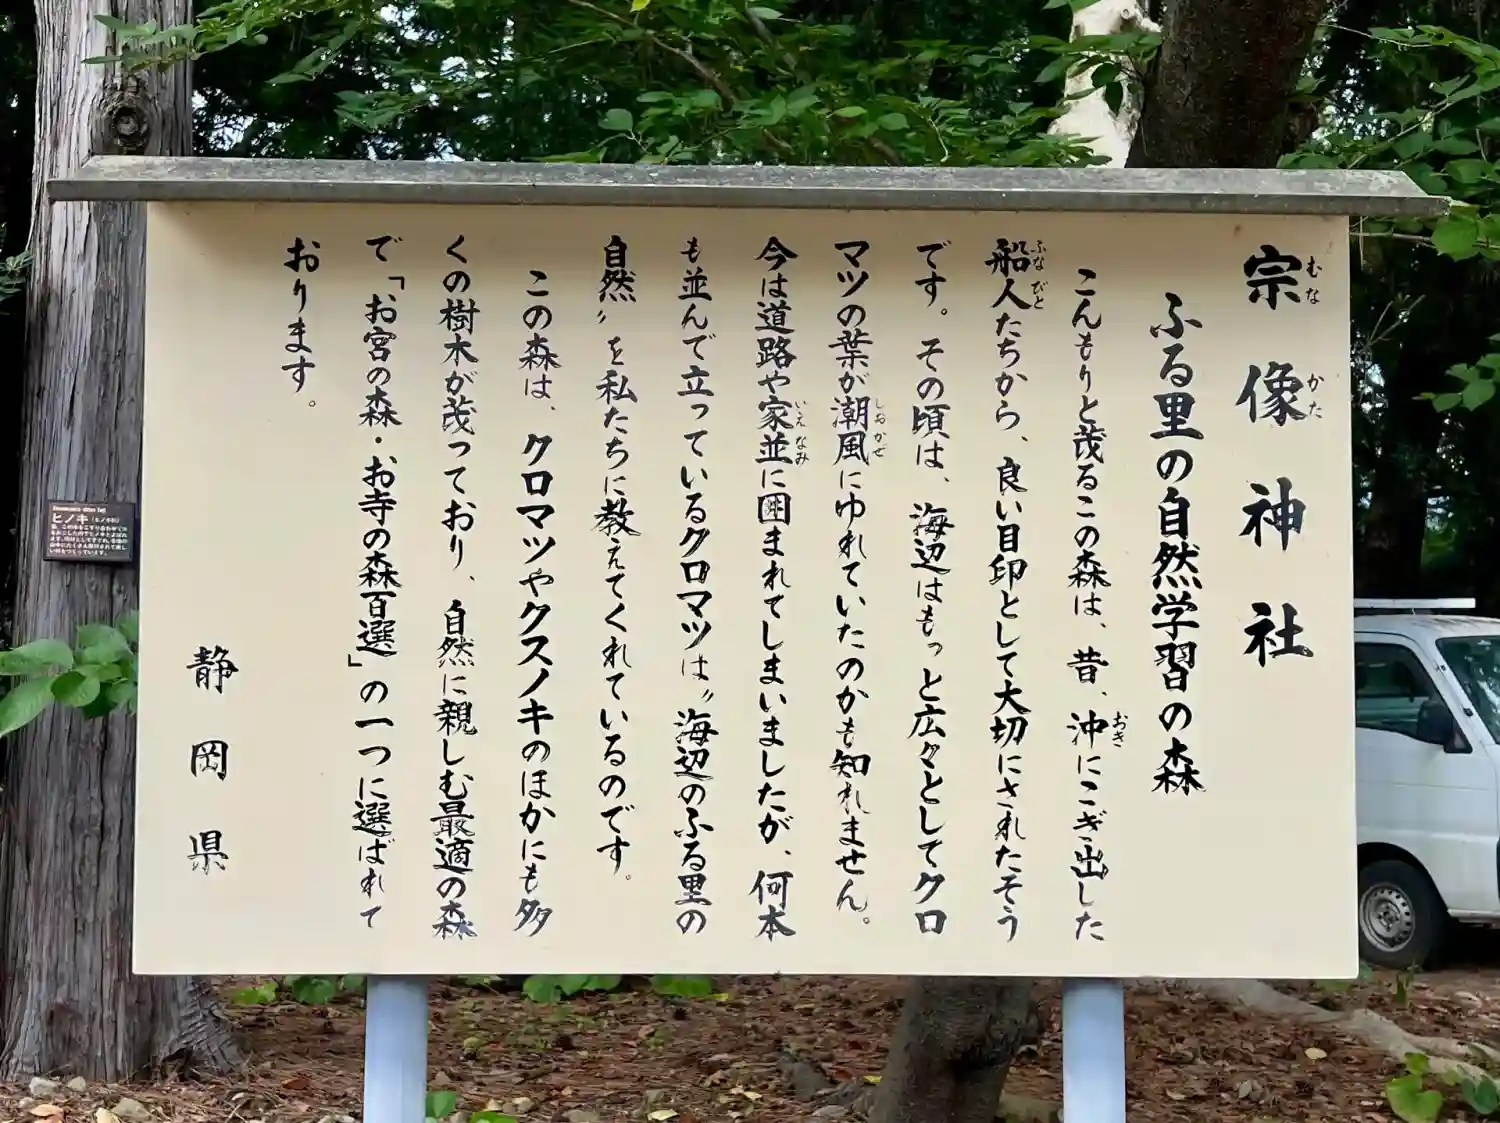 宗像神社
ふる里の自然学習の森
こんもりと茂るこの森は、昔、沖にこぎ出した
船人たちから、良い目印として大切にされたそう
です。その頃は、海辺はもっと広々としてクロ
マツの葉が潮風にゆれていたのかも知れません。
今は道路や家並に囲まれてしまいましたが、何本
も並んで立っているクロマツは〝海辺のふる里の
自然〟を私たちに教えてくれているのです。
この森は、クロマツやクスノキのほかにも多
くの樹木が茂っており、自然に親しむ最適の森
で「お宮の森・お寺の森百選」の一つに選ばれて
おります。
静岡県
ヒノキ